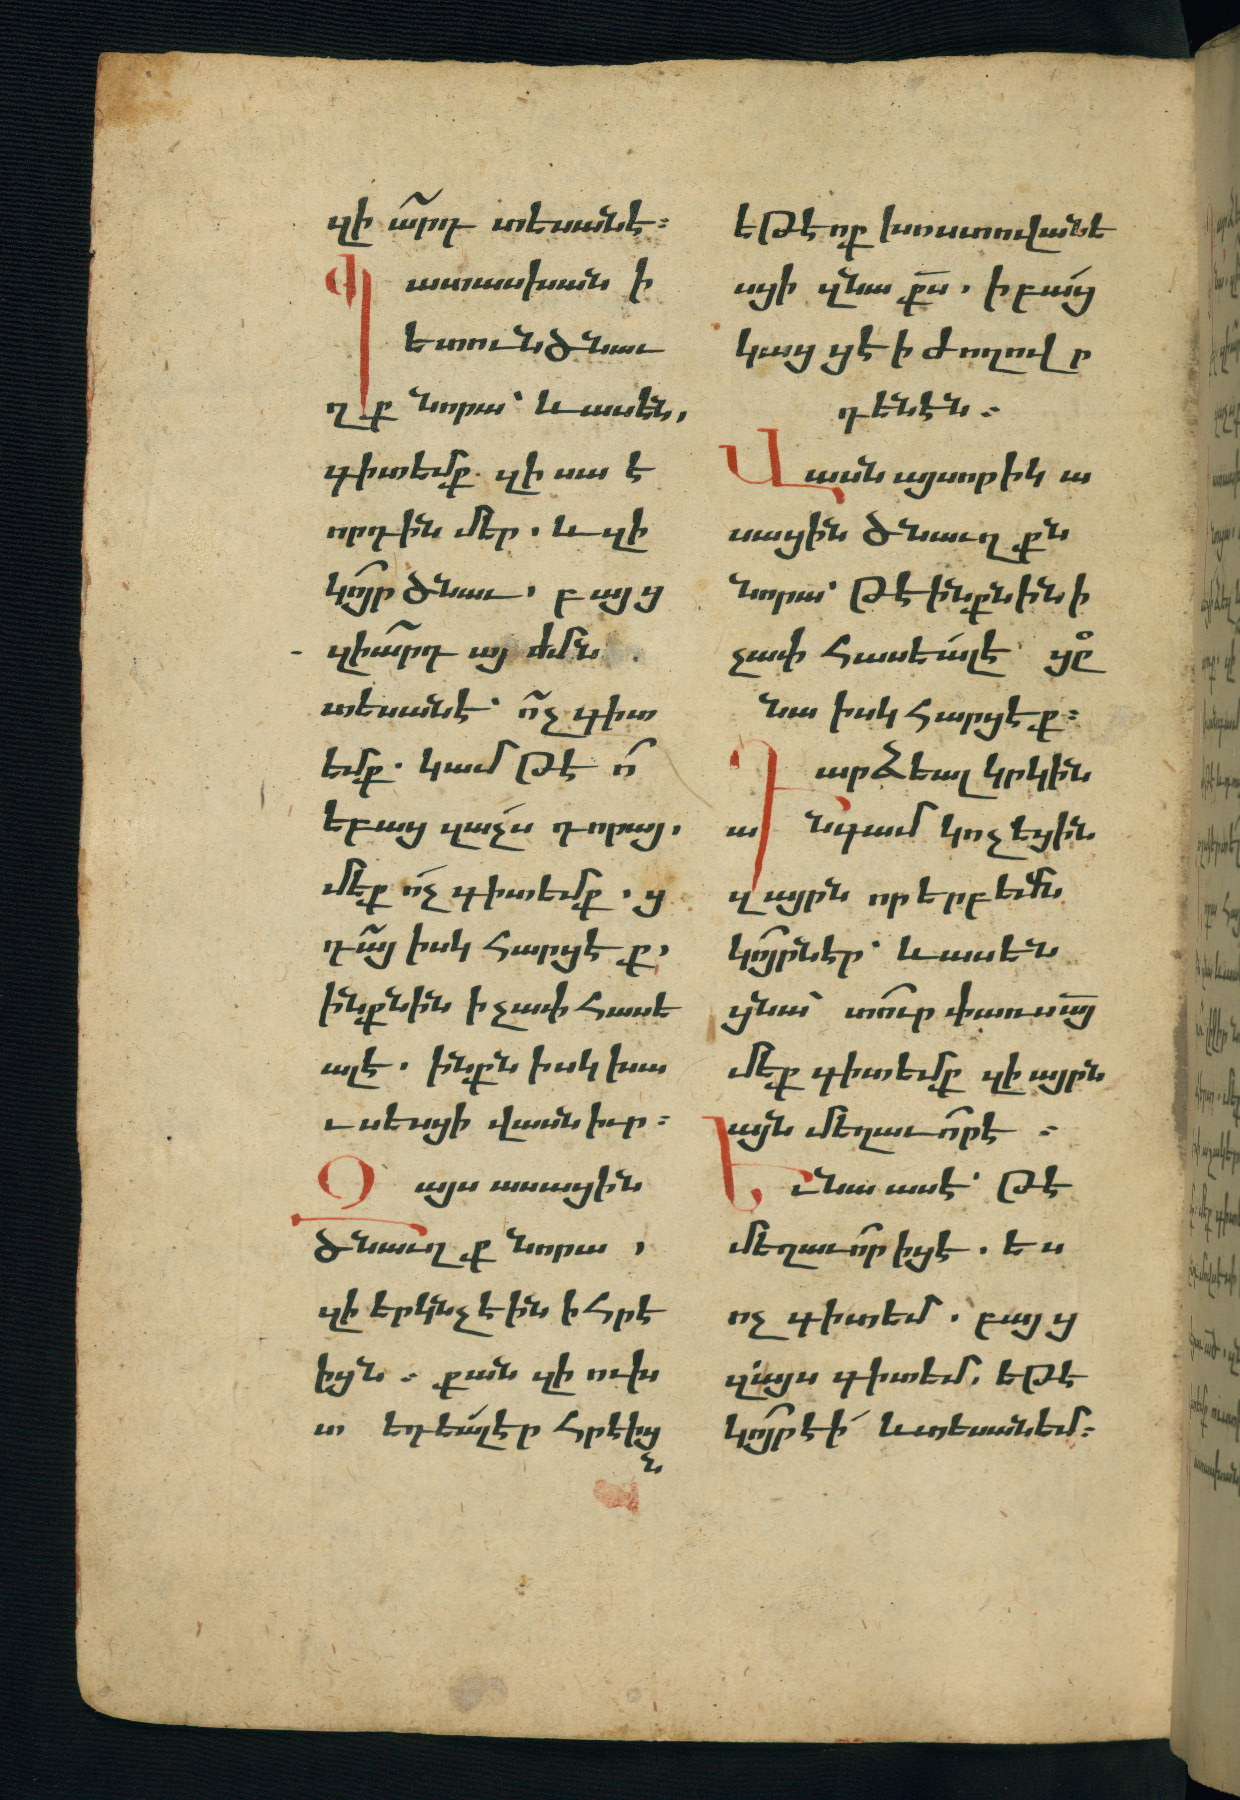 զի ա՞րդ տեսանէ։
Պատասխանի
ետուն ծնաւ
ղք նորա՝ և ասեն,
գիտեմք. զի սա է
որդին մեր. և զի
կոյր ծնաւ, բայց
զիա՞րդ այժմն
տեսանէ՝ ո՞չ գիտ
եմք. կամ թէ ո՞
եբաց զաչս դորայ,
մեք ո՛չ գիտեմք. ց
դա՞յ իսկ հարցէք,
ինքնին ի չափ հասե
ալ է. ինքն իսկ խաւ
սեսցի վասն իւր։
Զայս ասացին
ծնաւղք նորա,
զի երկնչէին ի հրէ
իցն։ քանզի ուխ
տ եդեալ էր հրէից
ն
եթէ ոք խոստովանե
սցի զնա քս, ի բա՛ց
կացցէ ի ժողովր
դենէն։
Վասն այսորիկ ա
սացին ծնաւղքն
նորա՝ թէ ինքնին ի
չափ հասեալ է՝ ցը
նա իսկ հարցէք։
Դարձեալ կրկին
անգամ կոչեցին
զայրն որ երբեմն
կոյրն էր՝ և ասեն
ցնա՝ տուր փառս այ
մեք գիտեմք զի այրն
այն մեղաւոր է։
Եւ նա ասէ՝ թէ
մեղաւոր իցէ. ես
ոչ գիտեմ. բայց
զայս գիտեմ, եթէ
կոյր էի՛ և տեսանեմ։